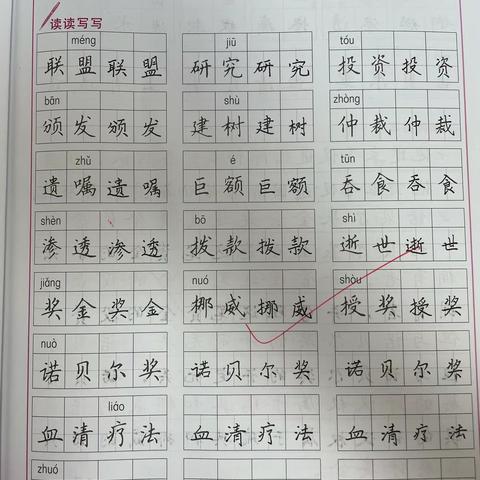 读读写写
méng jiū tóu
联盟联盟 研究研究 投资投资
bān shù zhòng
颁发颁发 建树建树 仲裁仲裁
zhǔ é tūn
遗嘱遗嘱 巨额巨额 吞食吞食
shèn bō shì
渗透渗透 拨款拨款 逝世逝世
jiǎng nuó shòu
奖金奖金 挪威挪威 授奖授奖
nuò
诺贝尔奖 诺贝尔奖 诺贝尔奖
liáo
血清疗法 血清疗法 血清疗法
zhuó